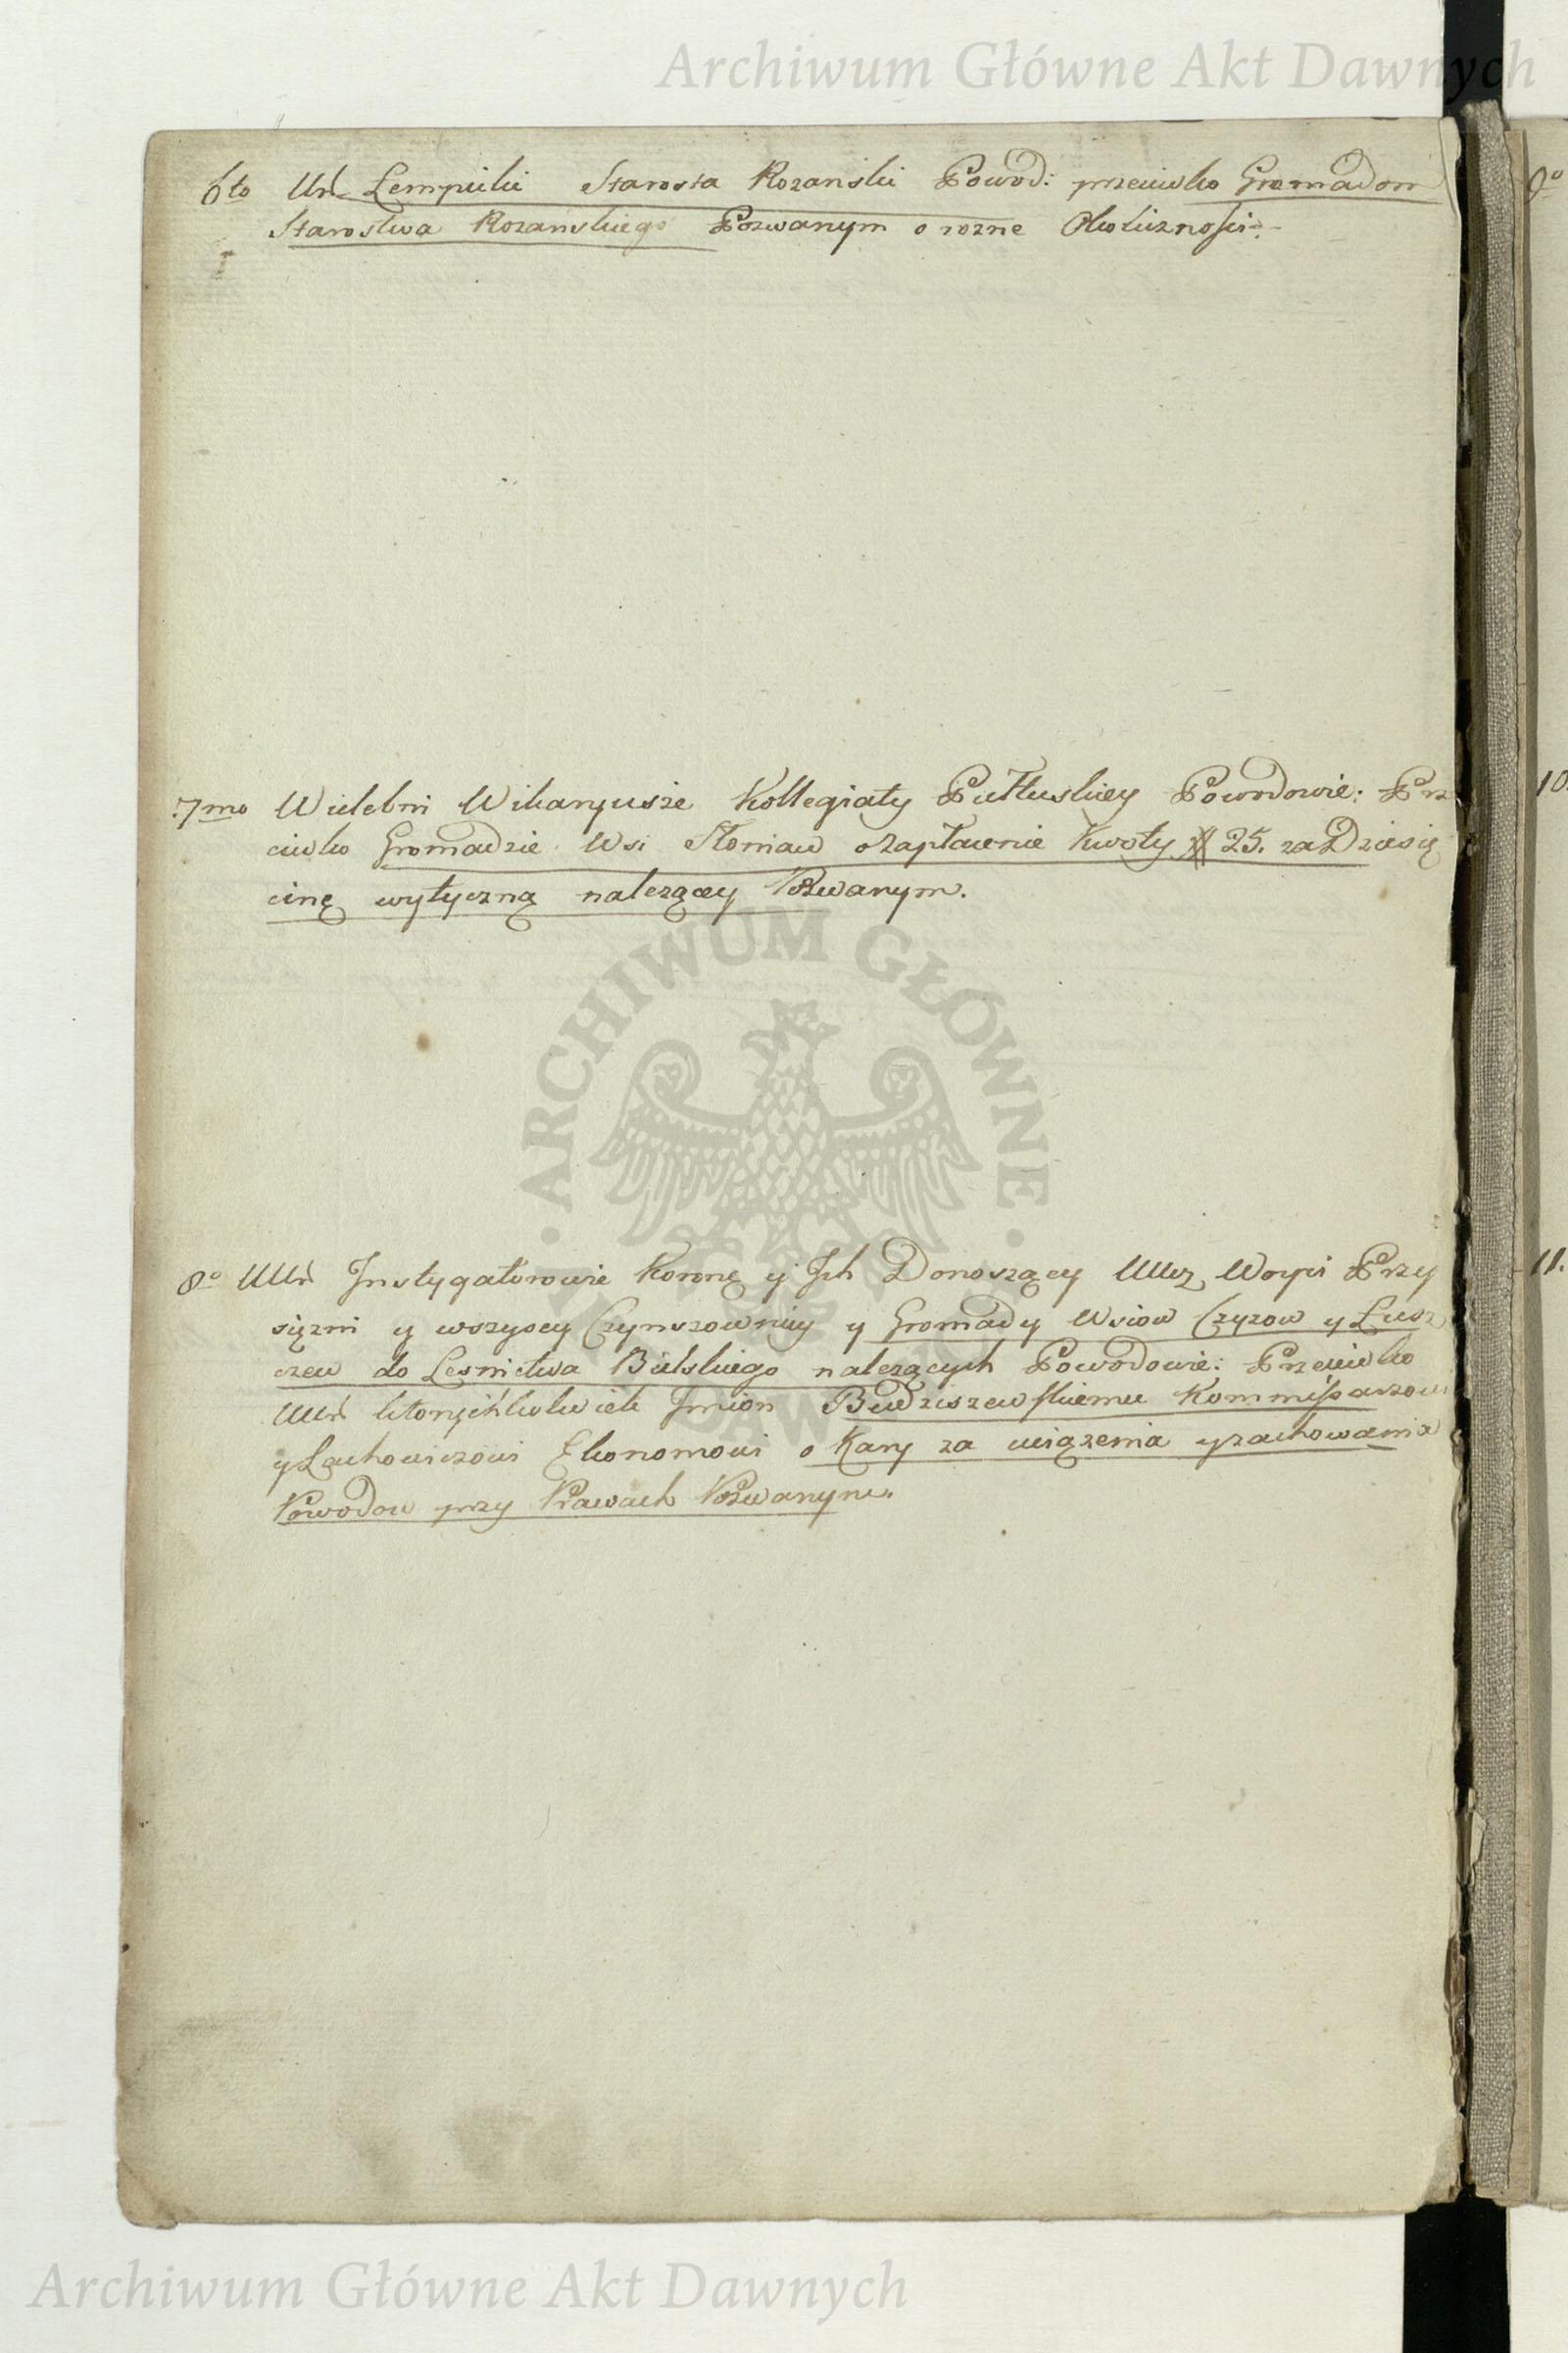 Archiwum Główne Akt Dawnych
6to Ur. Lempicki Starosta Rozanski Powod: przeciwko Gromadom
Starostwa Rozanskiego Pozwanym o rozne Okolicznosci.
7mo Wielebni Wikaryusze Kollegiaty Pułtuskiey Powodowie: Prze
ciwko Gromadzie Wsi Słoniaw o zapłacenie Kwoty 25. za Dziesię
cinę wytyczną nalezącey Pozwanym.
8o UUr. Instygatorowie Koronę y Ich Donoszący UUcz Woyci Przy
sięzni y wszyscy Czynszownicy y Gromady Wsiow Czyzow y
czew do Lesnictwa Bielskiego nalezących Powodowie: Przeciwko
UUr. ktorychkolwiek Imion Budziszewskiemu Kommissarzowi
y Lachowiczowi Ekonomowi o Kary za uciązenia y zachowania
Powodow przy Prawach Pozwanym.
ARCHIWUM GŁÓWNE
DAW
9o
10.
11.
Archiwum Główne Akt Dawnych